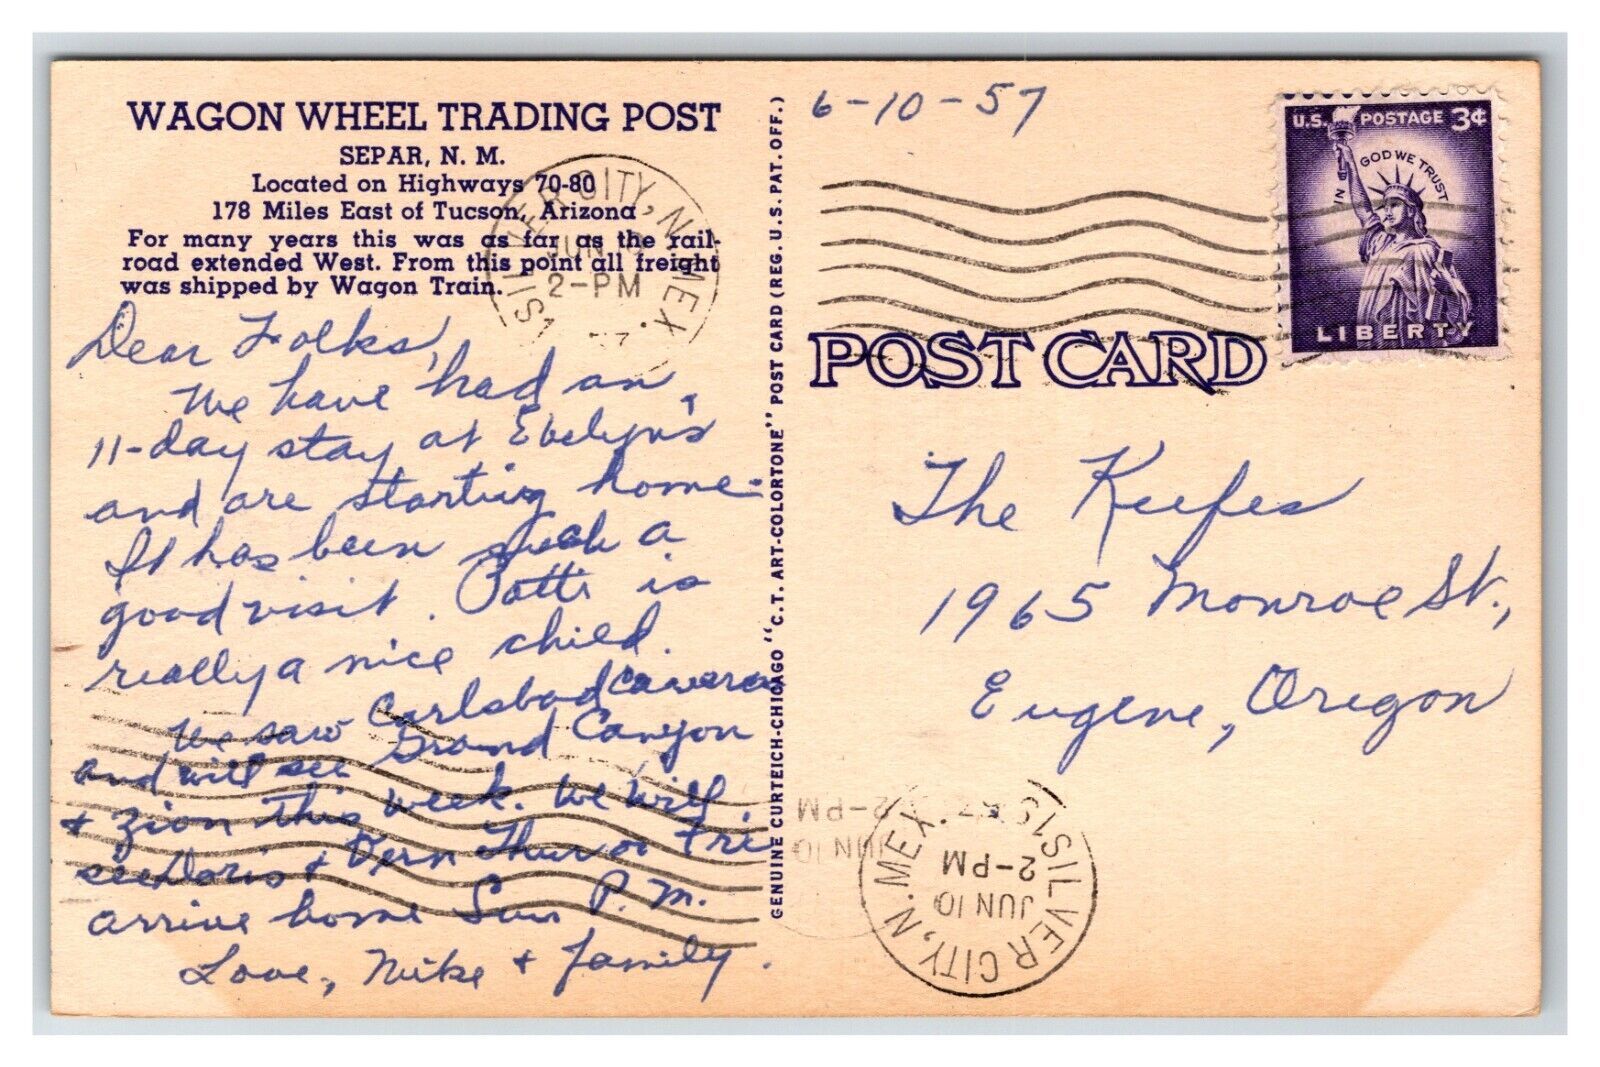 WAGON WHEEL TRADING POST
SEPAR, N. M.
Located on Highways 70-80
178 Miles East of Tucson, Arizona
For many years this was as far as the rail-
road extended West. From this point all freight
was shipped by Wagon Train.
Dear Folks,
We have had an
11-day stay at Evelyn's
and are starting home.
It has been such a
good visit. Patti is
really a nice child.
We saw Carlsbad Caverns
and will see Grand Canyon
& Zion this week. We will
see Doris & Vern Thur or Fri
arrive home Sun P.M.
Love, Mike & family.
GENUINE CURTEICH-CHICAGO "C.T. ART-COLORTONE" POST CARD (REG. U.S. PAT. OFF.)
6-10-57
U.S. POSTAGE 3¢
IN GOD WE TRUST
LIBERTY
POST CARD
The Keefes
1965 Monroe St.,
Eugene, Oregon
SILVER CITY, N. MEX.
JUN
2-PM
SILVER CITY, N. MEX.
JUN 10
2-PM
JUN 10
2-PM